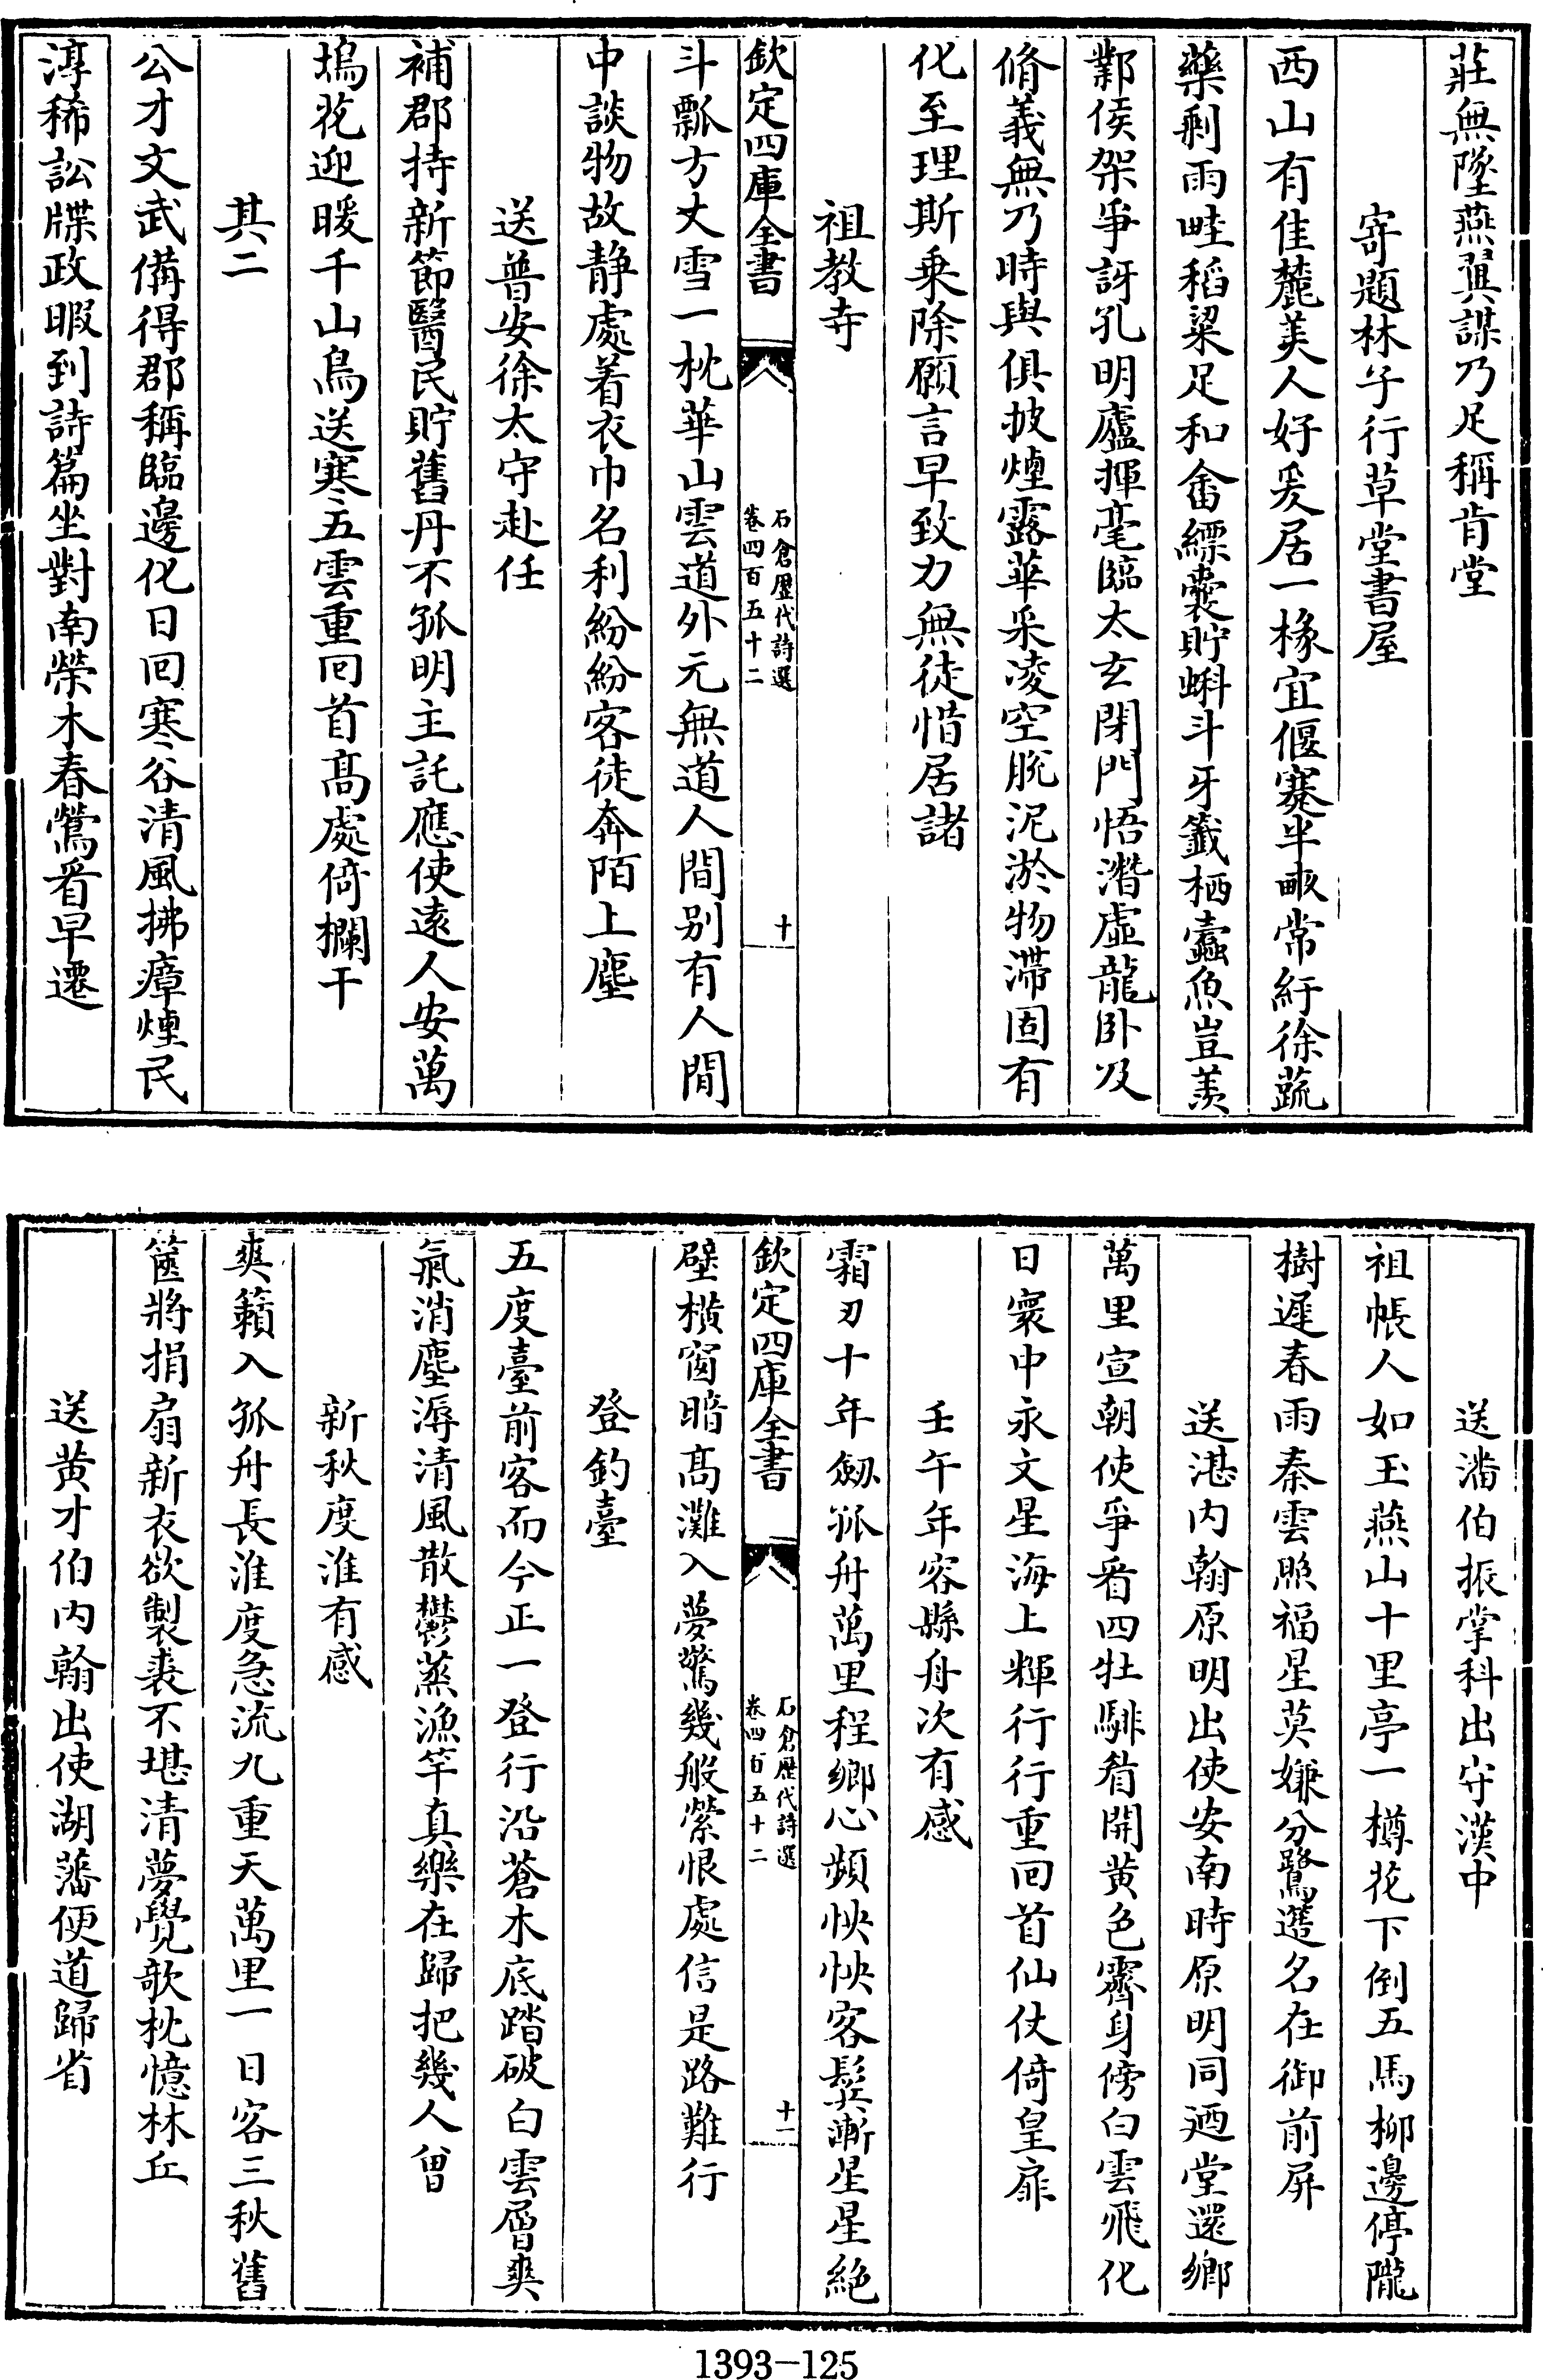 莊無墜燕翼謀乃足稱肯堂
寄題林子行草堂書屋
西山有佳麓美人好爰居一椽宜偃蹇半畝常紆徐蔬
藥剩雨畦稻粱足和畬縹囊貯蝌斗牙籤栖蠹魚豈羨
鄴侯架爭訝孔明廬揮毫臨太玄閉門悟潛虛龍卧及
脩義無乃時與俱披煙露華采凌空脫泥淤物滯固有
化至理斯乗除願言早致力無徒惜居諸
祖教寺
欽定四庫全書
石倉歷代詩選
卷四百五十二
十
斗瓢方丈雪一枕華山雲道外元無道人間别有人間
中談物故静處着衣巾名利紛紛客徒奔陌上塵
送普安徐太守赴任
補郡持新節醫民貯舊丹不孤明主託應使遠人安萬
塢花迎暖千山鳥送寒五雲重回首髙處倚欄干
其二
公才文武備得郡稱臨邊化日回寒谷清風拂瘴煙民
淳稀訟牒政暇到詩篇坐對南榮木春鶯看早遷
送潘伯振掌科出守漢中
祖帳人如玉燕山十里亭一樽花下倒五馬柳邊停隴
樹遲春雨秦雲照福星莫嫌分鷺選名在御前屏
送湛内翰原明出使安南時原明同迺堂還鄉
萬里宣朝使爭看四牡騑眉開黄色霽身傍白雲飛化
日寰中永文星海上輝行行重回首仙仗倚皇扉
壬午年容縣舟次有感
霜刃十年劔孤舟萬里程鄉心頻怏怏客鬂漸星星絶
欽定四庫全書
石倉歷代詩選
卷四百五十二
十一
壁横窗暗髙灘入夢驚幾般縈恨處信是路難行
登釣臺
五度臺前客而今正一登行沿蒼木底踏破白雲層爽
氣消塵溽清風散鬱蒸漁竿真樂在歸把幾人曾
新秋度淮有感
爽籟入孤舟長淮度急流九重天萬里一日客三秋舊
篋將捐扇新衣欲製裘不堪清夢覺歌枕憶林丘
送黄才伯内翰出使湖藩便道歸省
1393-125